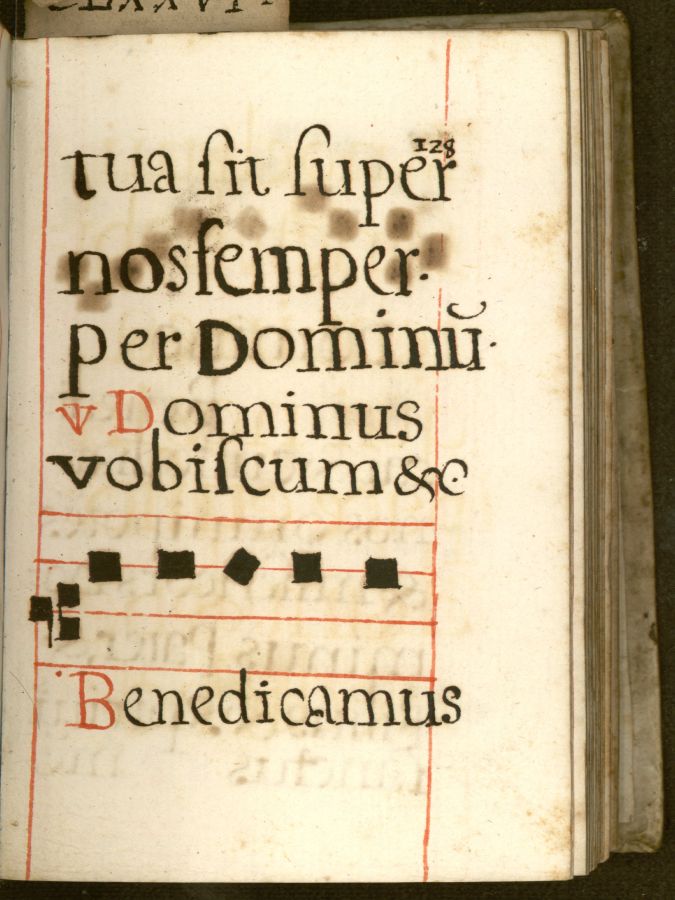 CLXXVII
128
tua ſit ſuper
nos ſemper.
per Dominū.
℣ Dominus
vobiſcum &c
Benedicamus